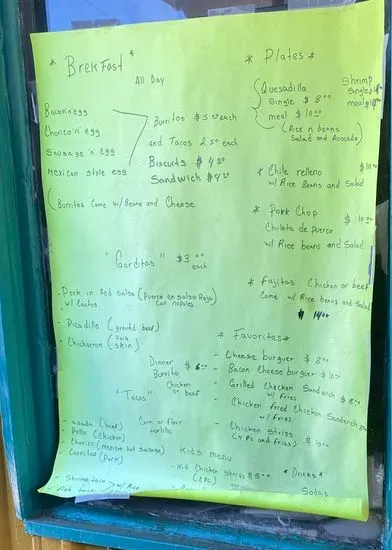 * BrekFast *
All Day
Bacon n egg
Chorico 'n' egg
Sausage 'n' egg
Mexican style egg
Burritos $5.00 each
and Tacos 2.50 each
Biscuits $4.00
Sandwich $4.00
(Burritos Come w/ Beans and Cheese
"Gorditas" $3.00
each
- Pork in Red Salsa (Puerco en salsa Roja)
w/ Cactus con nopales
- Picadillo (ground beef)
- Chicharron (Pork skin)
Dinner
Burrito $6.00
Chicken
or beef
"Tacos"
Corn or flour
tortilla
- asada (beef)
- Pollo (Chicken)
- Chorico (Mexican hot sausage)
- Carnitas (Pork)
- Shrimp taco w/ Rice
- Fish taco
* Plates *
Quesadilla
Single $8.00
meal $10.00
(Rice n beans
Salad and Avocado)
Shrimp
Single
meal
* Chile relleno
w/ Rice Beans and Salad
* Pork Chop
Chuleta de puerco
w/ Rice beans and Salad
* Fajitas Chicken or beef
Come w/ Rice beans and Salad
$14.00
* Favorites *
- Cheese burguer $8.00
- Bacon Cheese burguer $10.00
- Grilled Chicken Sandwich $8.00
w/ Fries
- Chicken fried Chicken Sandwich
w/ Fries
- Chicken strips
(4 Pc and fries) $10.00
Kids menu
- Kid Chicken Strips $5.00
(2 PC)
* Drinks *
Sodas